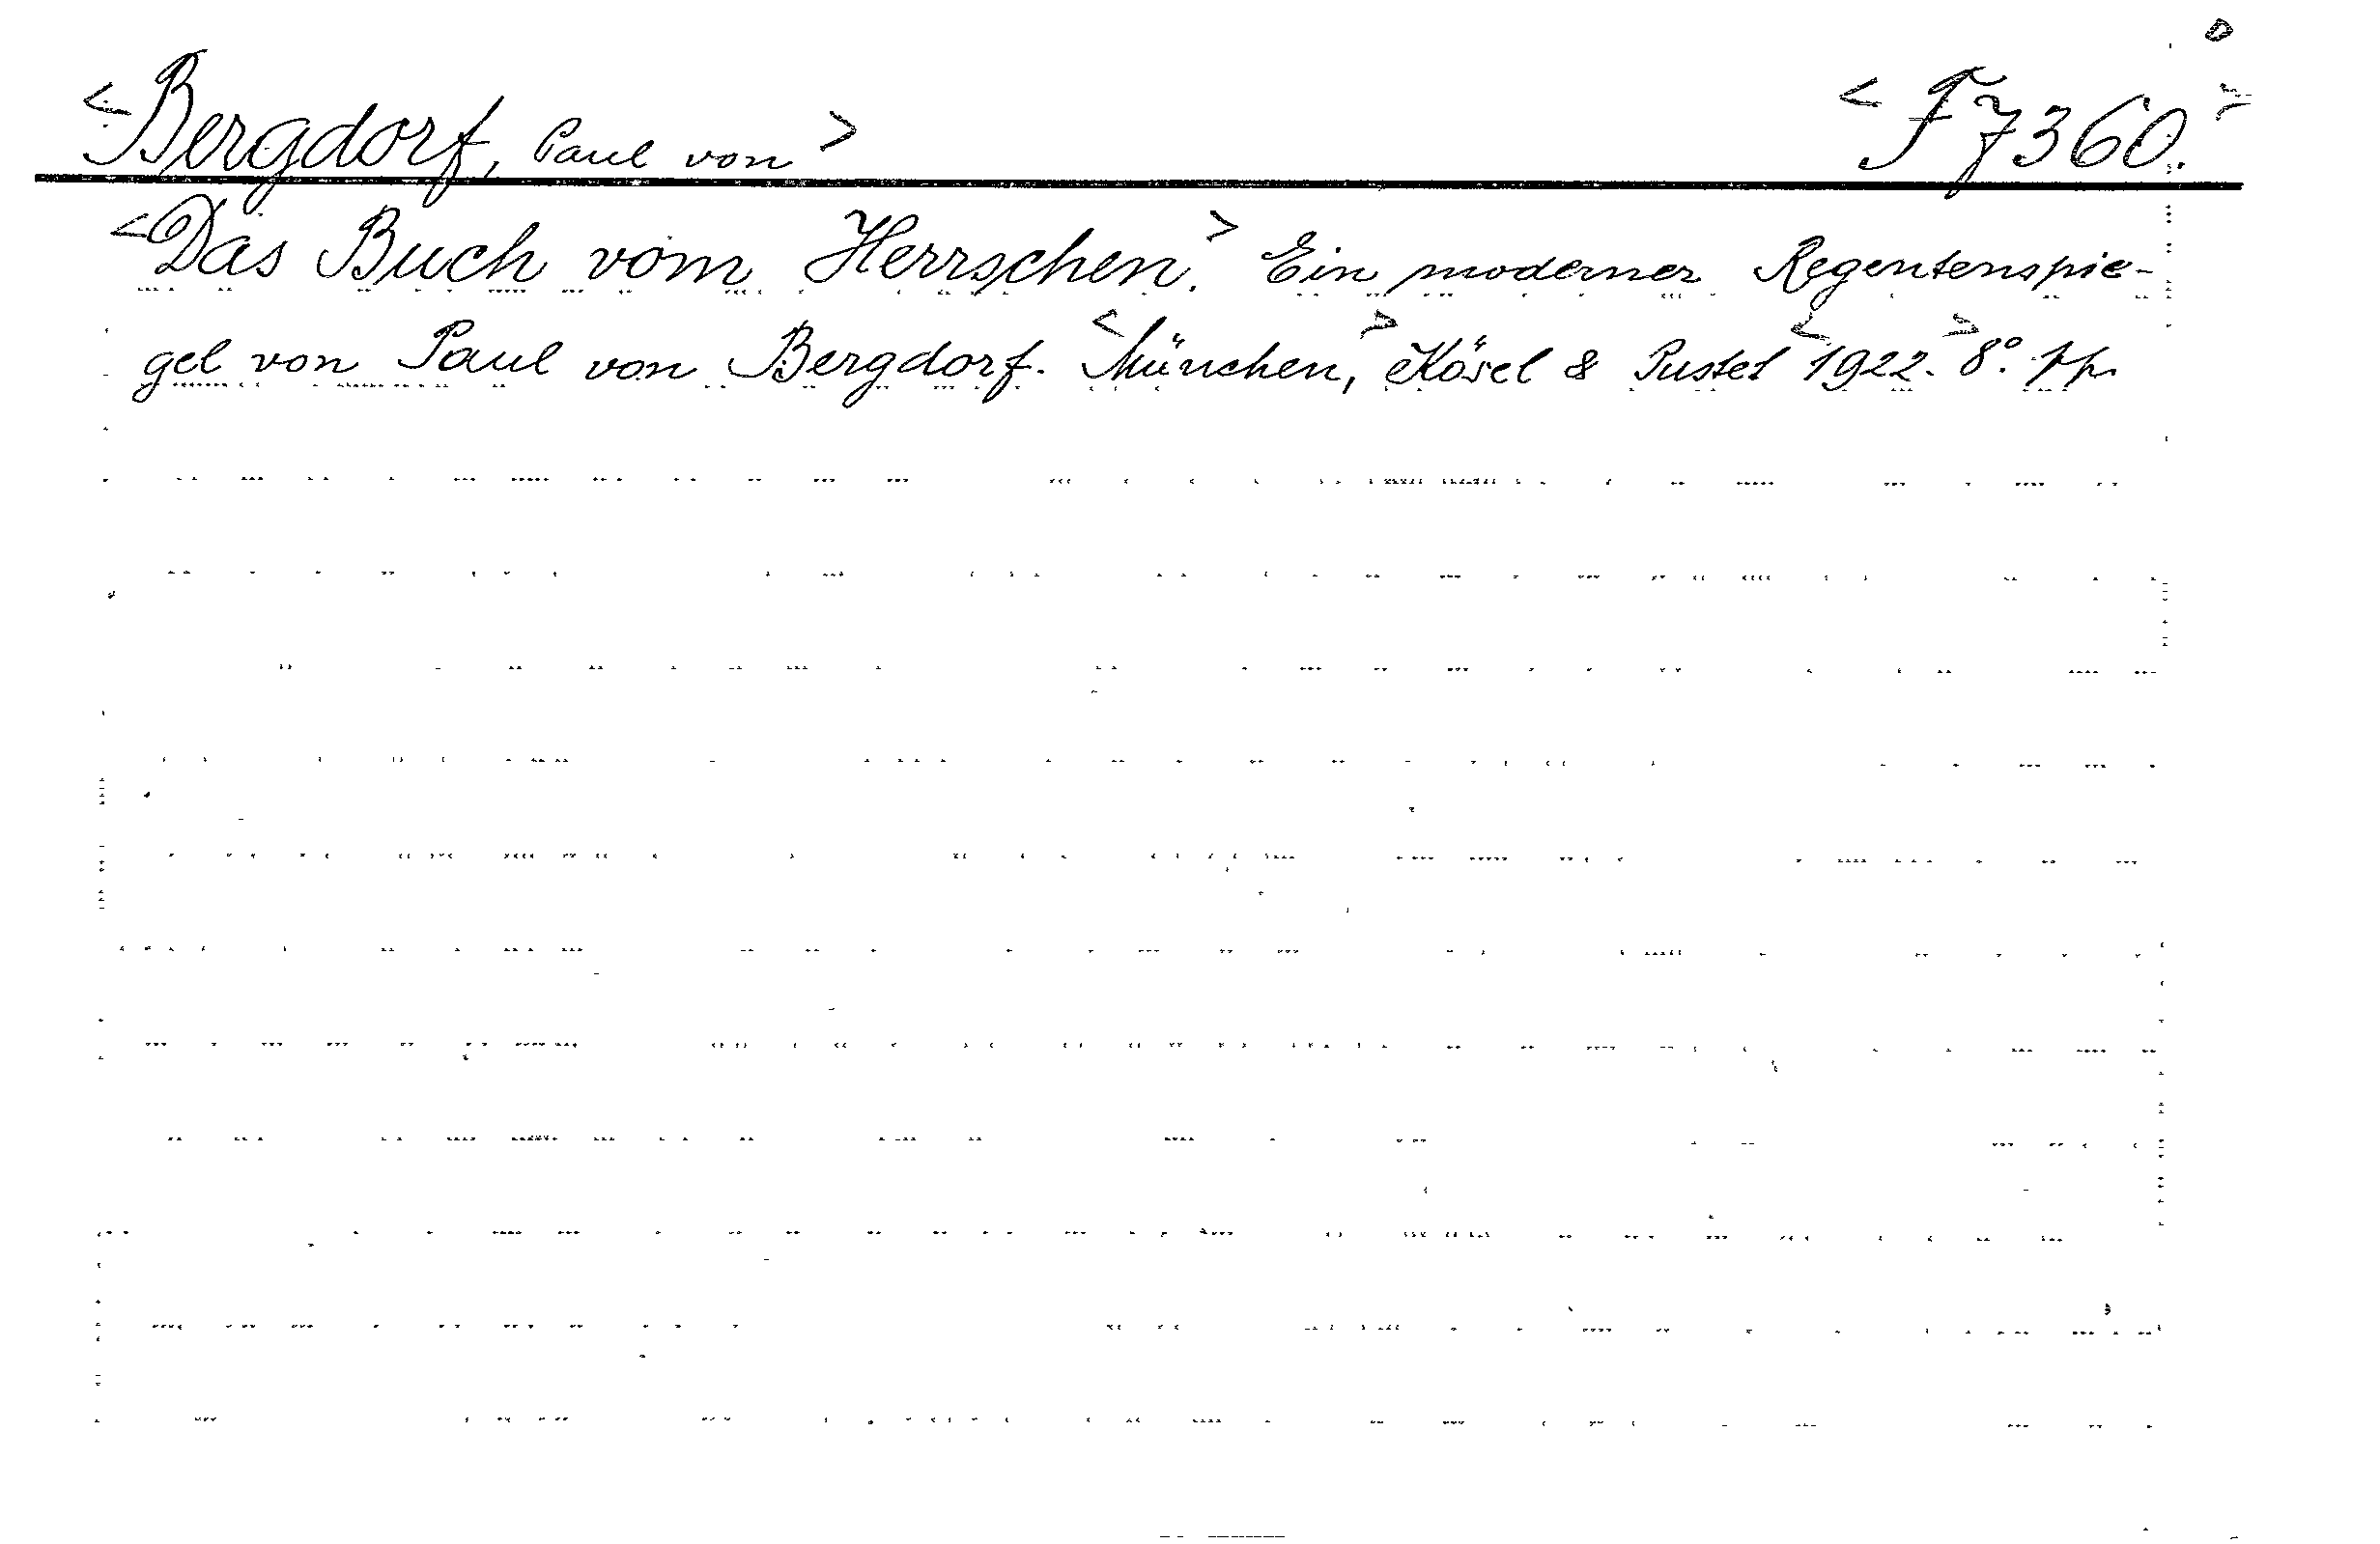 <Bergdorf, Paul von> <F 7360.>
<Das Buch vom Herrschen.> Ein moderner Regentenspie-
gel von Paul von Bergdorf. <München,> Kösel & Pustet <1922.> 8°. pp.